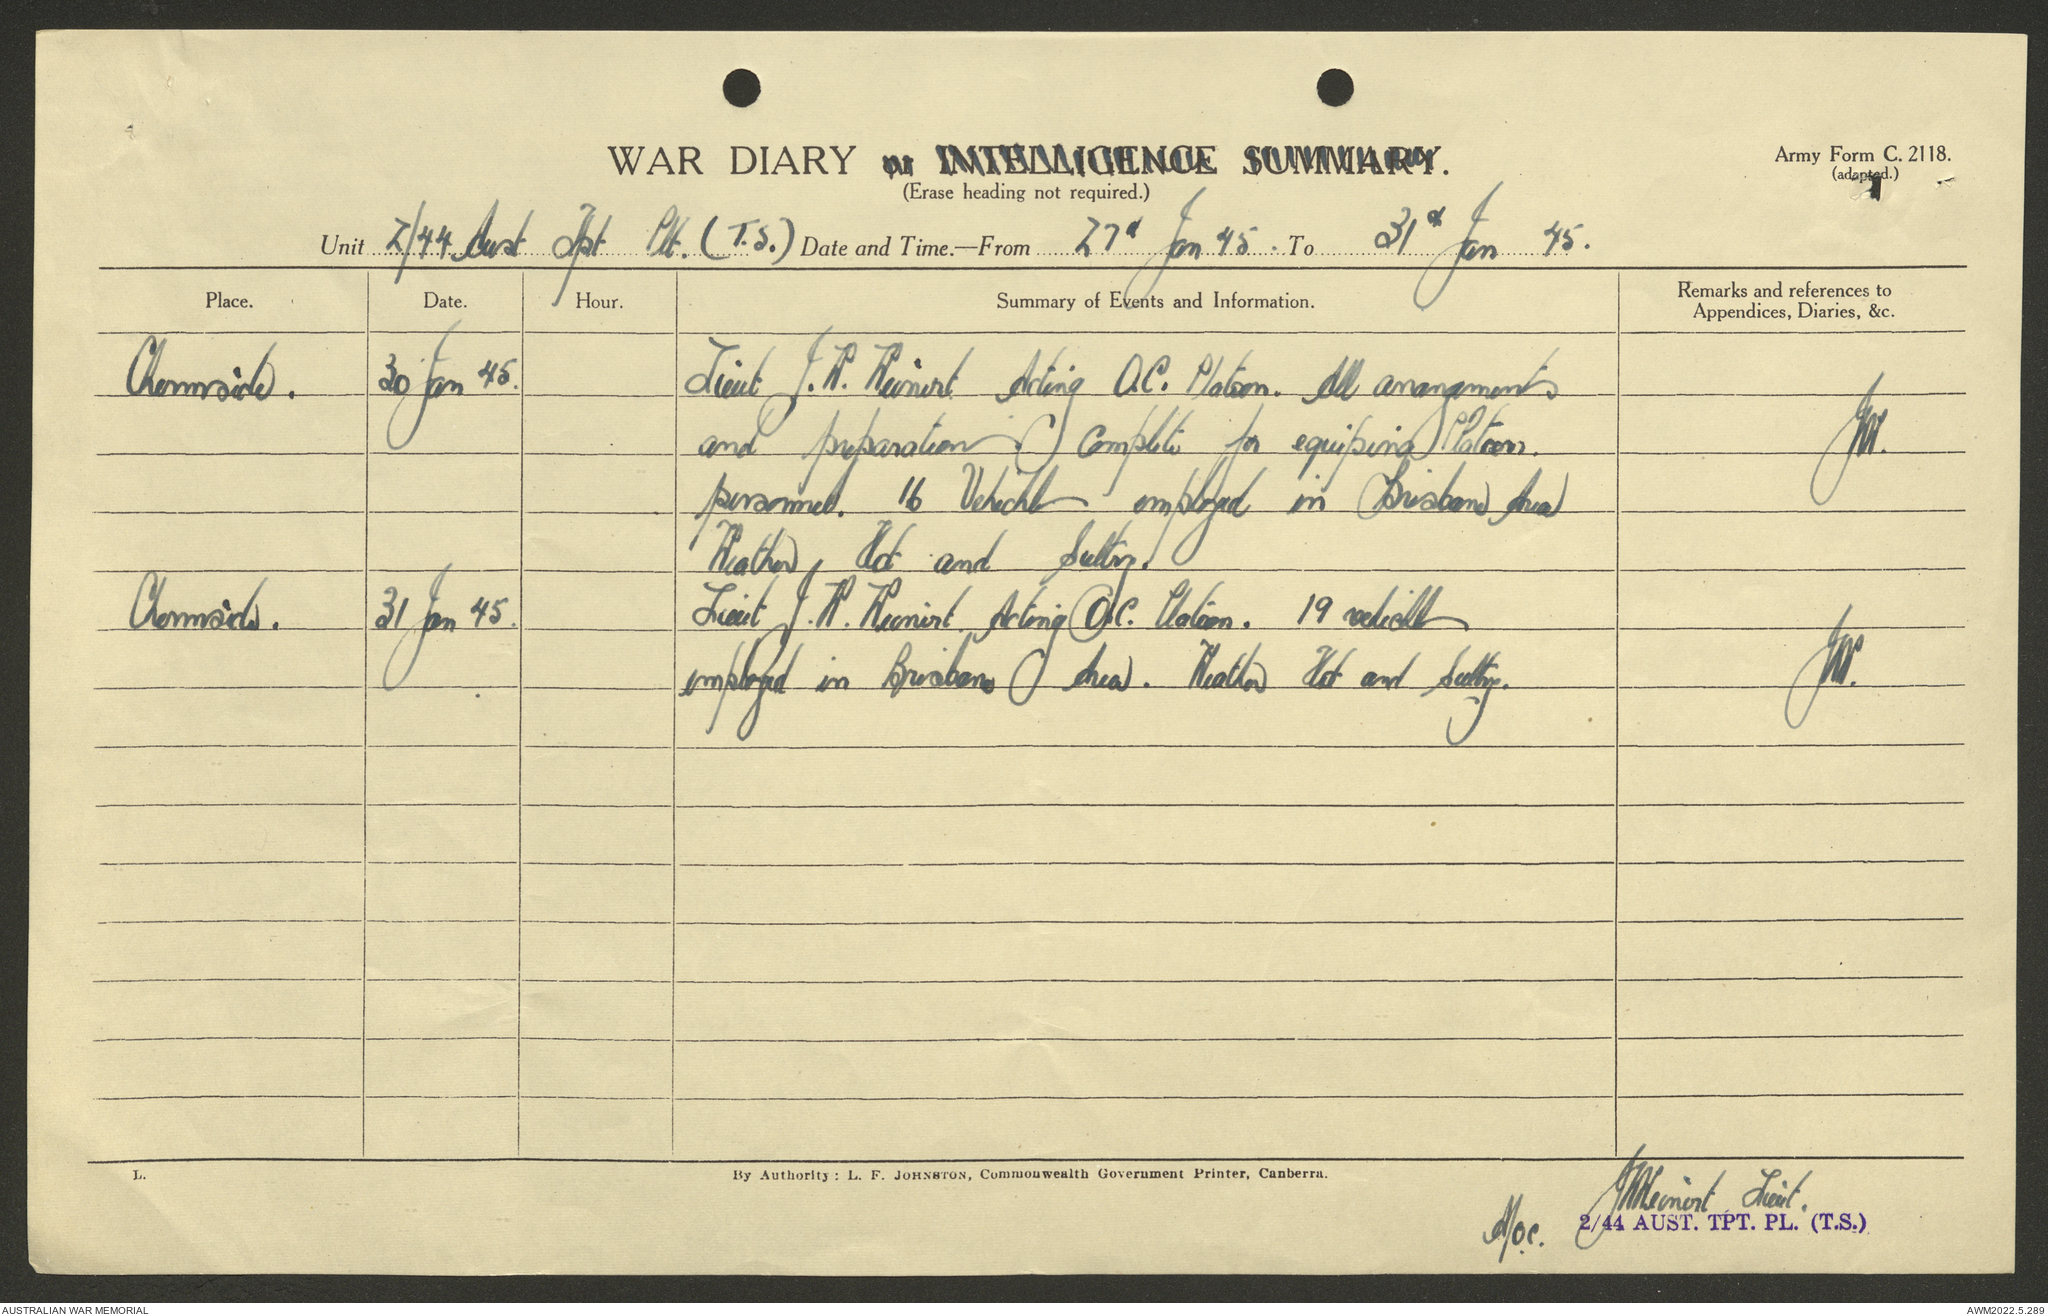 WAR DIARY or INTELLIGENCE SUMMARY.
(Erase heading not required.)
Army Form C. 2118.
(adapted.)
Unit 2/44 Aust Tpt Plt. (T.S.) Date and Time.—From 27th Jan 45. To 31st Jan 45.
Place. Date. Hour. Summary of Events and Information. Remarks and references to
Appendices, Diaries, &c.
Chermside. 30 Jan 45. Lieut J.W. Weinert Acting O.C. Platoon. All arrangements
and preparation complete for equiping Platoon.
personnel. 16 Vehicles employed in Brisbane Area
Weather, Hot and Sultry.
Chermside. 31 Jan 45. Lieut J.W. Weinert Acting O.C. Platoon. 19 vehicles
employed in Brisbane Area. Weather Hot and Sultry.
L. By Authority: L. F. JOHNSTON, Commonwealth Government Printer, Canberra.
JWWeinert Lieut.
A/OC. 2/44 AUST. TPT. PL. (T.S.)
AUSTRALIAN WAR MEMORIAL AWM2022.5.289